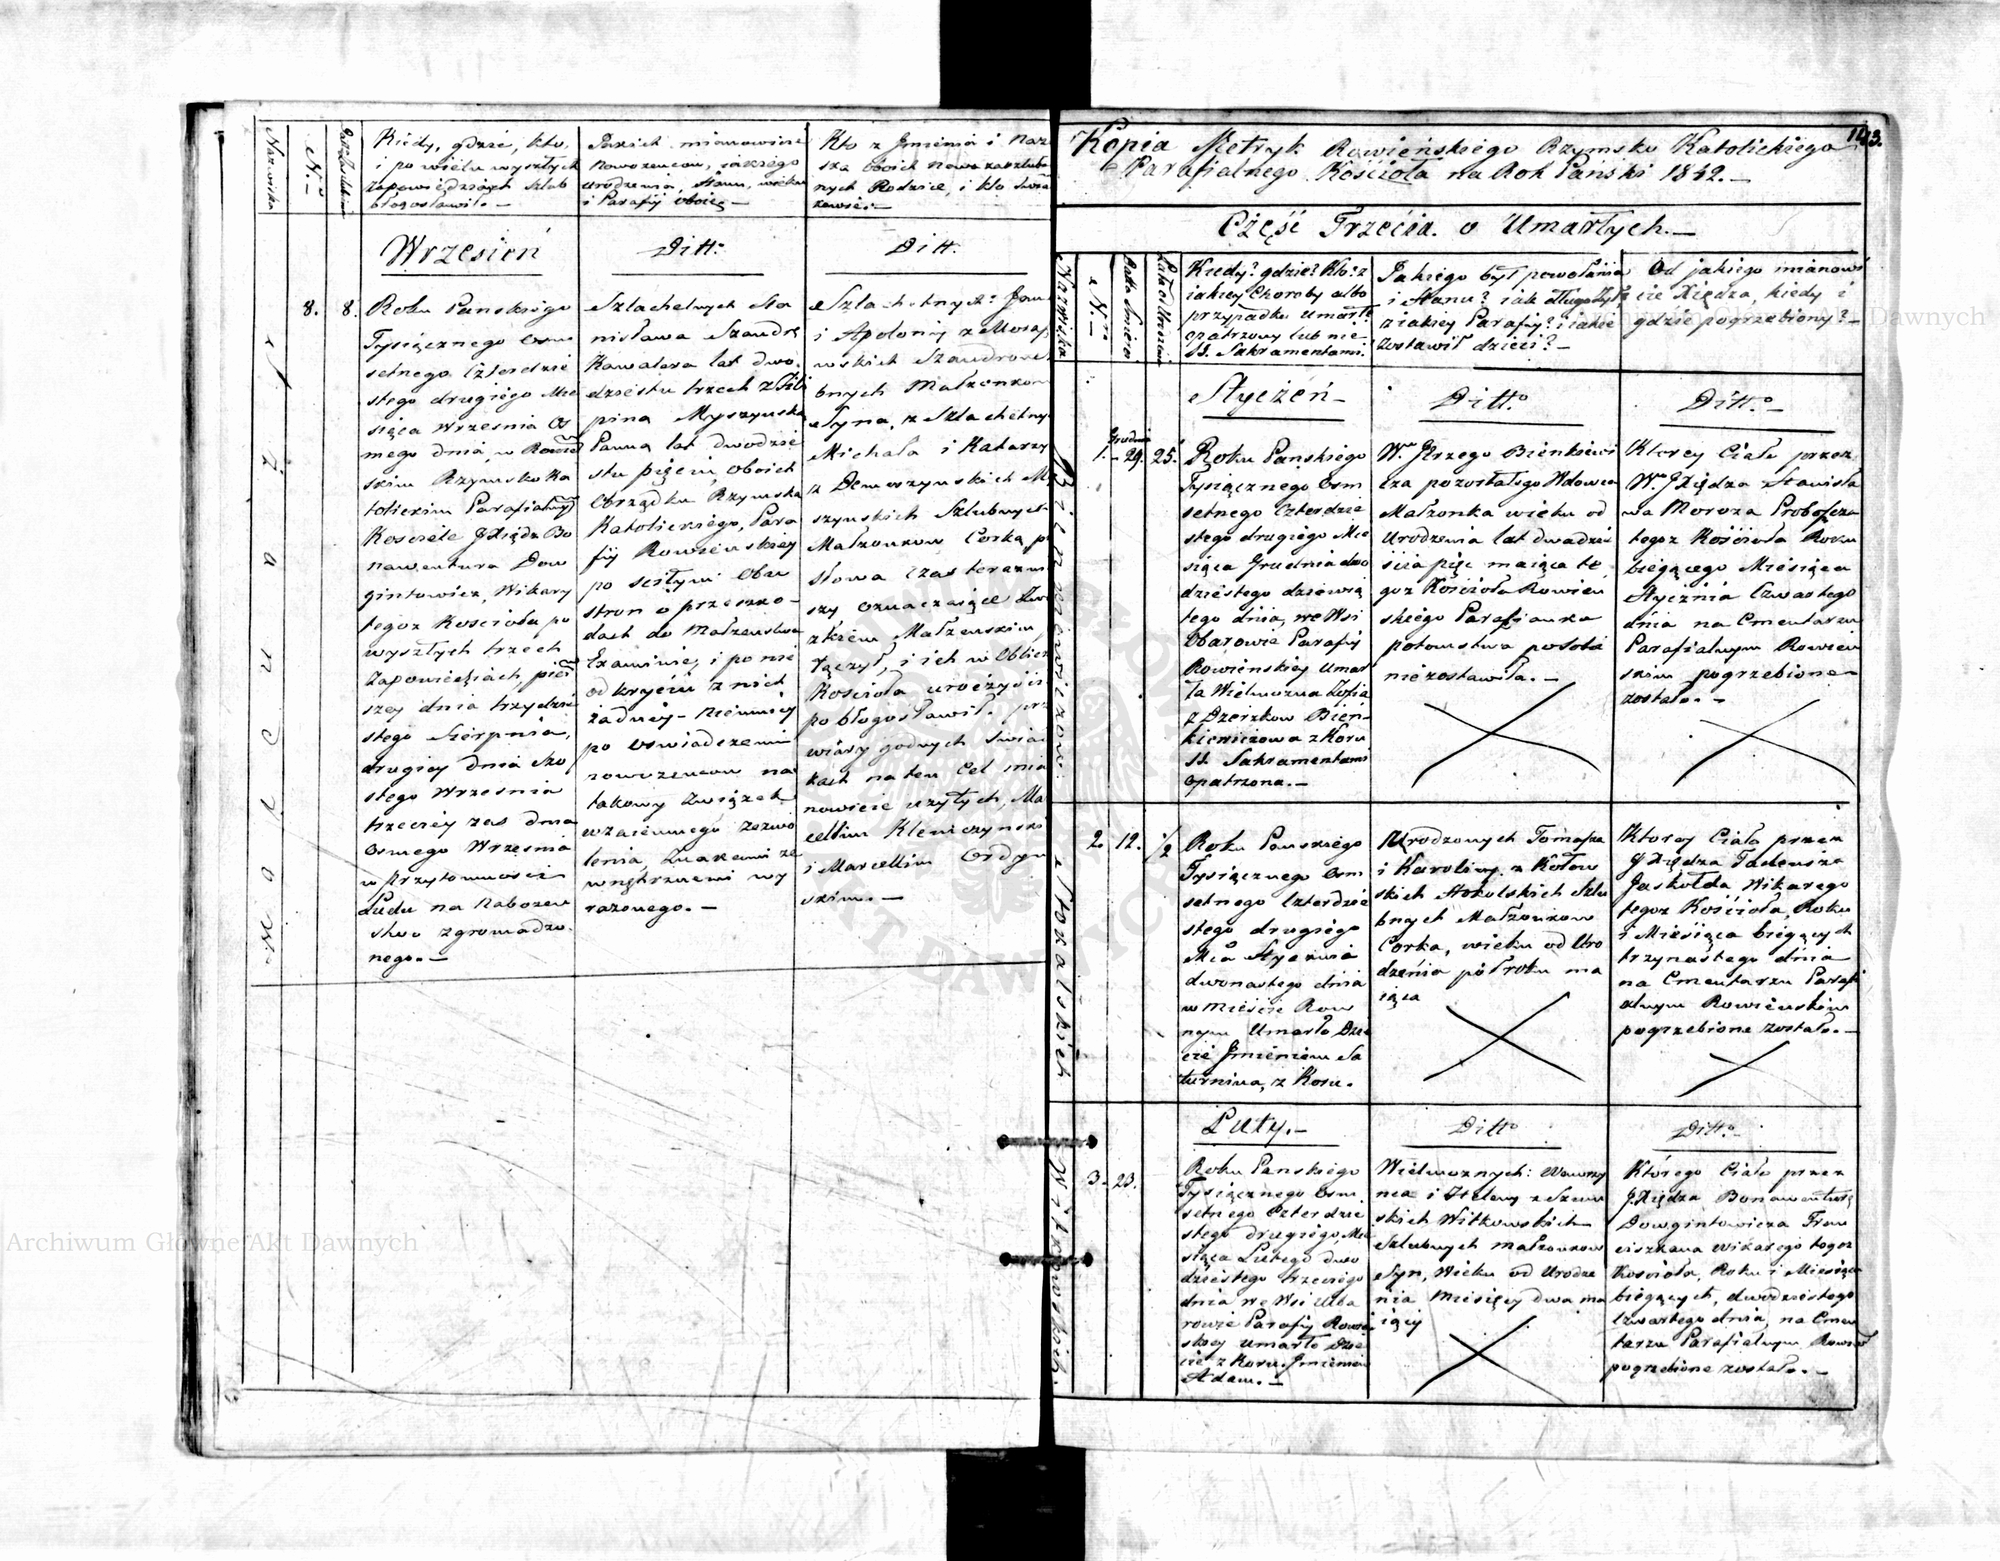 Nazwiska
N.
Kiedy, gdzie, kto,
i po wielu wyszłych
zapowiedziach szlub
błogosławił. —
Jakich mianowicie
Nowożencow, jakiego
urodzenia, stanu, wieku
i Parafij oboie —
Kto z Jmienia i Naz
ska oboich nowo zaszlubio
nych Rodzice, i kto świa
kowie. —
Wrzesień
Ditto
Ditt.
8.
8.
Szandrow
Roku Panskiego
Tysiącznego osm
setnego Czterdzie
stego drugiego Mie
siąca Wrzesnia Os
mego dnia, w Rowień
skim Rzymsko Ka
tolickim Parafialnym
Kościele JXiądz Bo
nawentura Dow
gintowicz, Wikary
tegoż Kościoła po
wyszłych trzech
Zapowiedziach, pier
szey dnia trzydzie
stego Sierpnia,
drugiey dnia szo
stego Wrzesnia
trzeciey zas dnia
Osmego Wrzesnia
w przytomnosci
Ludu na Nabożen
stwo zgromadzo
nego. —
Szlachetnych Sta
nisława Szandrę
Kawalera lat dwo
dziestu trzech z Fili
piną Myszyńską
Panną lat dwodzie
stu pięciu, oboich
Obrządku Rzymsko
Katolickiego, Para
fij Rowieńskiey
po scisłym Obu
stron o przeszko
dach do Małżenstwa
Examinie, i po nie
odkryciu z nich
żadney —
po oswiadczeniu
nowożencow na
takowy Związek
wzaiemnego zezwo
lenia, Znakami ze
wnętrznemi wy
rażonego. —
Szlachetnych: Jana
i Apolonij z Moraj
wskich Szandrow
bnych Małżonkow
Syna, z Szlachetnych
Michała i Katarzy
z Demorzynskich My
szynskich Szlubnych
Małżonkow Corką p
słowa Czas teraznie
szy oznaczaiące Zwi
zkiem Małżenskim
złączył, i ich w Oblicz
Kościoła uroczyście
pobłogosławił. prz
wiary godnych świad
kach na ten Cel mia
nowicie użytych, Ma
cellim Kleniczynski
i Marcellim Ordyn
skim. —
Kopia Metryk Rowieńskiego Rzymsko Katolickiego
Parafialnego Kościoła na Rok Pański 1842. —
143.
Część Trzecia o Umarłych. —
Nazwiska
N.
Data Smierci
Lata Urodzenia
Kiedy? gdzie? Kto? z
iakiey Choroby albo
przypadku umarł?
opatrzony lub nie
SS. Sakramentami.
Jakiego był powołania
i stanu? iak długo żył,
z iakiey Parafij? i iakie
zostawił dzieci? —
Od jakiego mianowi
cie Xiędza, kiedy i
gdzie pogrzebiony? —
Styczeń —
Ditto
Ditto —
Bienkiewiczowa
1.
Grudnia
29.
25.
Roku Panskiego
Tysiącznego osm
setnego Czterdzie
stego drugiego Mie
siąca Grudnia dwo
dziestego dziewią
tego dnia, we Wsi
Obarowie Parafij
Rowieńskiey umar
ła Wielmożna Zofia
z Dzeizkow Bień
kiewiczowa z Koru
SS. Sakramentami
opatrzona. —
W. Jerzego Bienkiewi
cza pozostałego Wdowca
Małżonka wieku od
urodzenia lat dwadzie
scia pięc maiąca te
goż Kościoła Rowien
skiego Parafianka
potomstwa po sobie
nie zostawiła. —
Ktorey Ciało przez
W. JXiędza Stanisła
wa Moroza Proboszcza
tegoż Kościoła Roku
biegącego Miesiąca
Stycznia Czwartego
dnia na Cmentarzu
Parafialnym Rowień
skim pogrzebione
zostało. —
Stokalskich
2.
12.
1/2
Roku Panskiego
Tysiącznego osm
setnego Czterdzie
stego drugiego
Mca Stycznia
dwonastego dnia
w Miescie Row
nym Umarło Dzie
cie Jmieniem Sa
turnina, z Koru.
Urodzonych Tomasza
i Karoliny z Kołow
skich Stokalskich Szlu
bnych Małżonkow
Corka, wieku od Uro
dzenia poł roku ma
iąca
Ktorey Ciało przez
JXiędza Tadeusza
Jaskołda, Wikarego
tegoż Kościoła, Roku
i Miesiąca biegących
trzynastego dnia
na Cmentarzu Parafi
alnym Rowieńskim
pogrzebione zostało. —
Luty. —
Ditto
Ditto —
Witkowskich.
3.
23.
Roku Panskiego
Tysiącznego osm
setnego Czterdzie
stego drugiego, Mie
siąca Lutego dwo
dziestego trzeciego
dnia we Wsi Oba
rowie Parafij Rowień
skiey umarło Dzie
cie z Koru. Jmieniem
Adam. —
Wielmożnych: Wawrzy
nca i Heleny z Szum
skich Witkowskich
Szlubnych małżonkow
Syn, Wieku od Urodze
nia Miesięcy dwa ma
iący
Którego Ciało przez
JXiędza Bonawenturę
Dowgintowicza Fran
ciszkana Wikarego tegoż
Kościoła, Roku i Miesiąca
biegących, dwodziestego
Czwartego dnia, na Cmen
tarzu Parafialnym Rowień
pogrzebione zostało. —
Archiwum Główne Akt Dawnych
Archiwum Główne Akt Dawnych